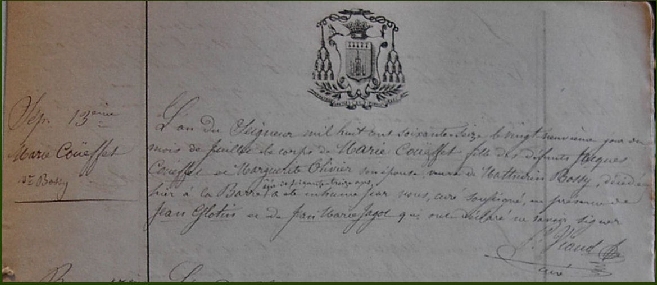 Sép. 13ème
Marie Couëffet
Ve Bossy
L'an du Seigneur mil huit cent soixante seize le vingt neuvième jour du
mois de juillet le corps de Marie Couëffet fille des défunts Jacques
Couëffet et Marguerite Olivier son épouse, veuve de Mathurin Bossy, décédée
âgée de soixante treize ans
hier à la Barre a été inhumé par nous, curé soussigné, en présence de
Jean et de Jean Marie Jagot qui ont déclaré ne savoir signer
curé